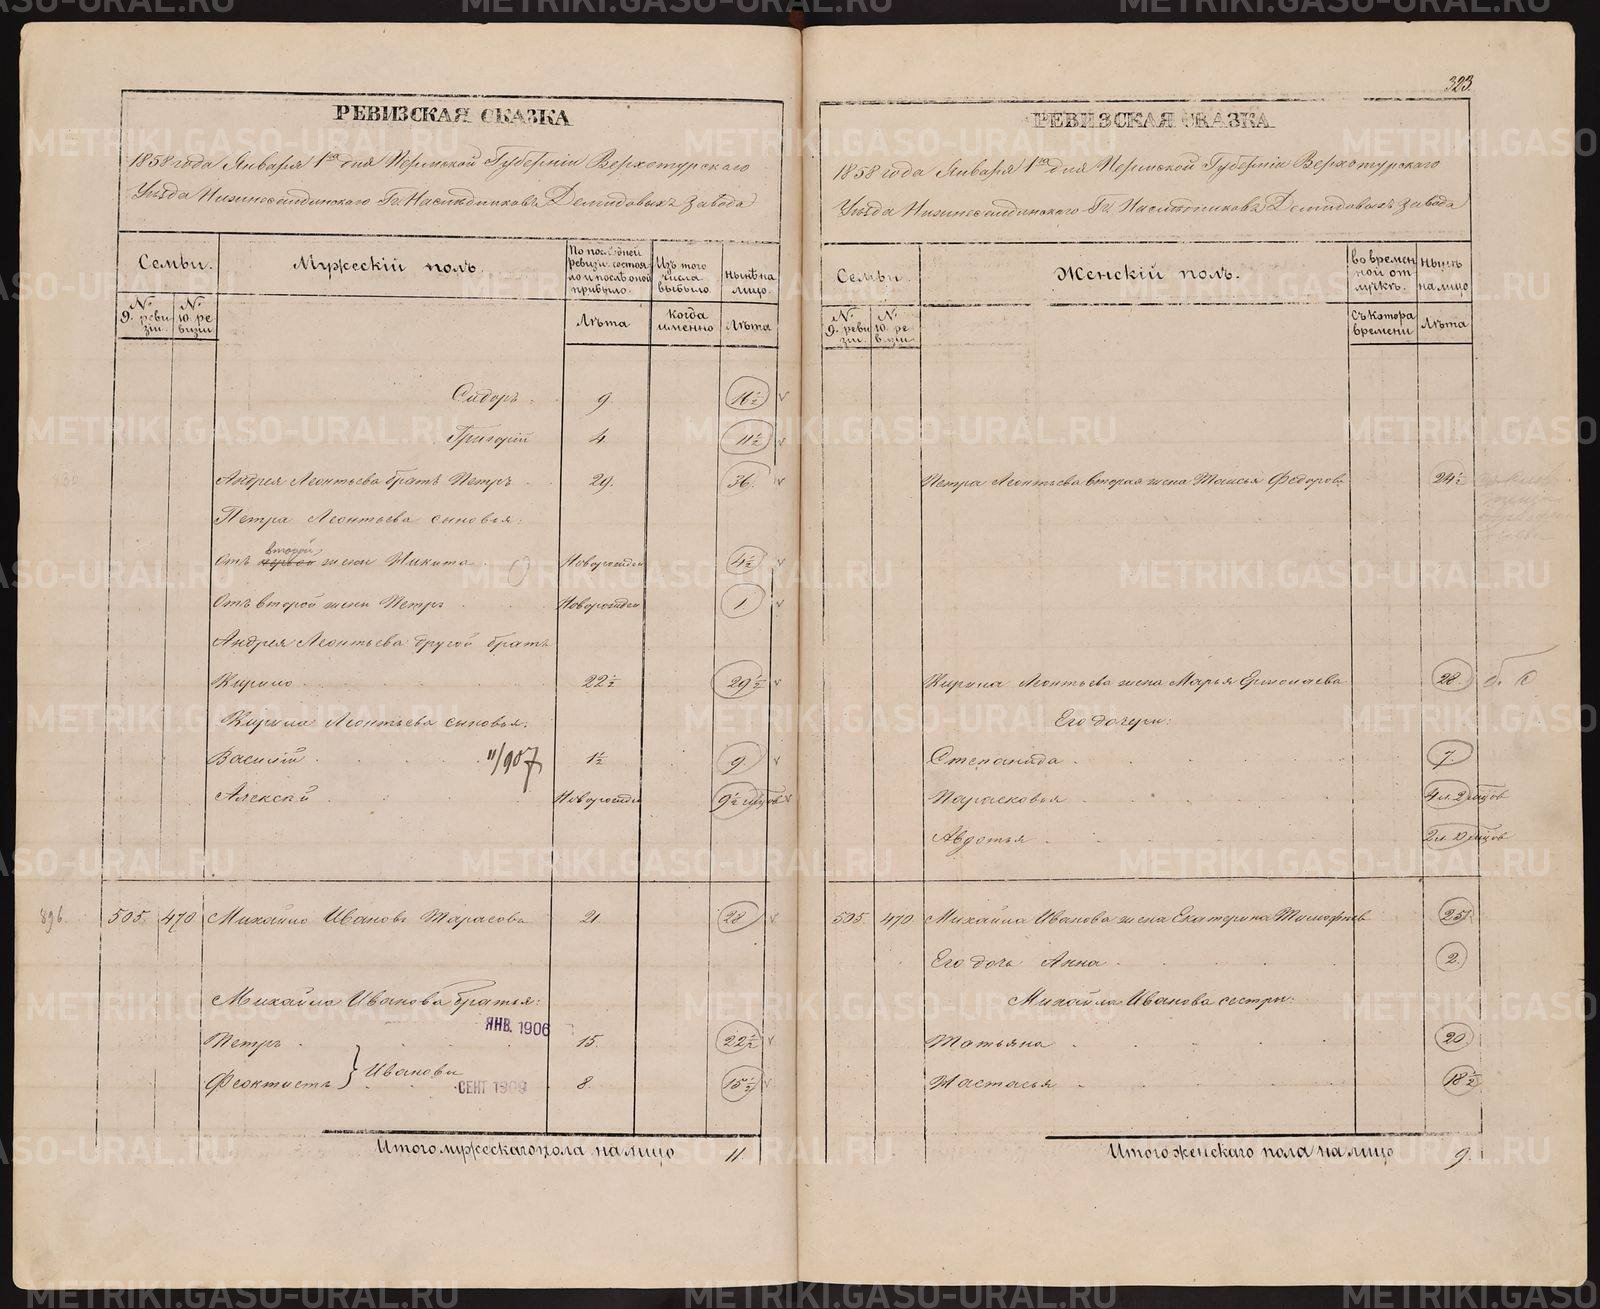 323.
РЕВИЗСКАЯ СКАЗКА
1858 года Января 1го дня Пермской Губерніи Верхотурскаго
Уѣзда Нижнесалдинскаго Гг. Наслѣдниковъ Демидовыхъ Завода
Семьи.
Мужескій полъ.
По последней ревизіи состояло и послѣ оной прибыло.
Изъ того числа выбыло
нынѣ на лицо.
№ 9. ревизіи.
№ 10. ревизіи
Лѣта
когда именно
Лѣта
Сидоръ 9. 16½
Григорій 4. 11½
Андрея Леонтьева братъ Петръ 29. 36.
Петра Леонтьева сыновья:
второй
Отъ первой жены Никита Новорожден 4½
Отъ второй жены Петръ Новорожден 1.
Андрея Леонтьева другой братъ
Кирило 22½ 29½
Кирила Леонтьева сыновья:
Василій 11/907 1½ 9
Алексѣй Новорожден 9½ мцов
896. 505. 470 Михайло Ивановъ Тарасовъ 21. 28
Михайла Иванова братья:
ЯНВ. 1906
Петръ 15. 22½
Феоктистъ } Ивановы 8. 15½
СЕНТ 1909
Итого мужескаго пола на лицо 11
РЕВИЗСКАЯ СКАЗКА
1858 года Января 1го дня Пермской Губерніи Верхотурскаго
Уѣзда Нижнесалдинскаго Гг. Наслѣдниковъ Демидовыхъ Завода
Семьи
Женскій полъ.
во временной отлучкѣ.
нынѣ на лицо
№ 9. ревизіи.
№ 10. ревизіи.
Съ котора времени
Лѣта
Петра Леонтьева вторая жена Таисья Федорова 24½
Кирила Леонтьева жена Марья Ермолаева 28.
Его дочери:
Степанида 7.
Парасковья 4 л. 2 мцов
Авдотья
505. 470 Михайла Иванова жена Екатерина Тимофеев 25½
Его дочь Анна 2.
Михайла Иванова сестры:
Татьяна 20
Настасья 18½
Итого женскаго пола на лицо 9.
METRIKI.GASO-URAL.RU